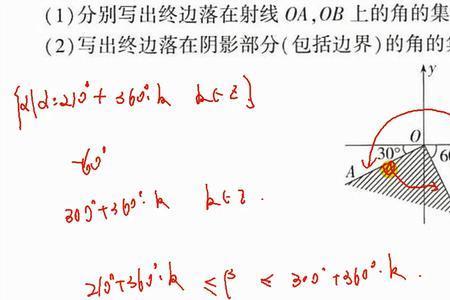 (1)分别写出终边落在射线 OA,OB 上的角的集
(2)写出终边落在阴影部分(包括边界)的角的集
{α|α=210°+360°·k k∈Z}
-60°
300°+360°·k k∈Z.
210°+360°·k ≤β ≤ 300°+360°·k.
y
O
30°
60
A